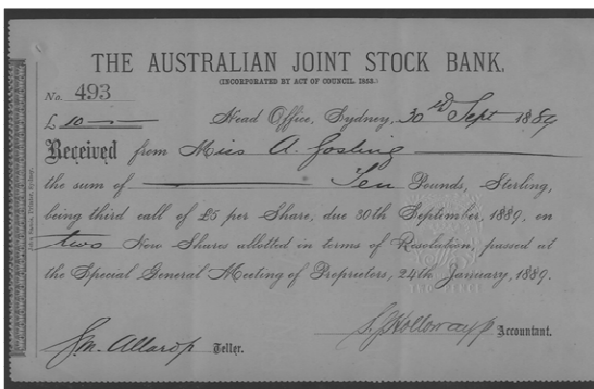 THE AUSTRALIAN JOINT STOCK BANK.
(INCORPORATED BY ACT OF COUNCIL. 1853.)
No. 493
£ 10
Head Office, Sydney, 30th Sept 1889
Received from Miss A. Gosling
the sum of Ten Pounds, Sterling,
being third call of £5 per Share, due 30th September, 1889, on
two New Shares allotted in terms of Resolution, passed at
the Special General Meeting of Proprietors, 24th January, 1889.
Teller.
Accountant.